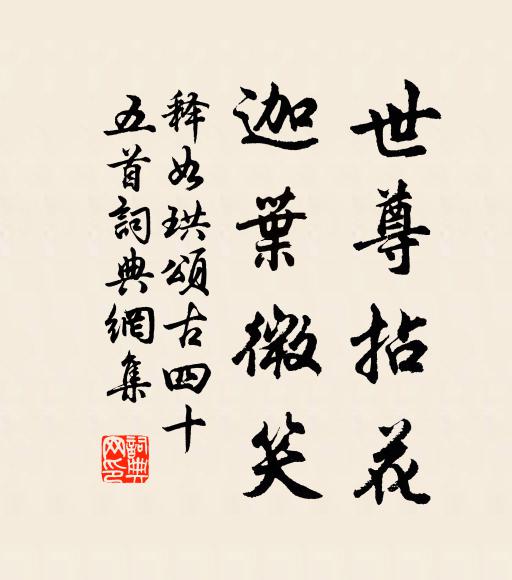 世尊拈花
迦葉微笑
释如珙頌古四十
五首詞典網集
詞典网印